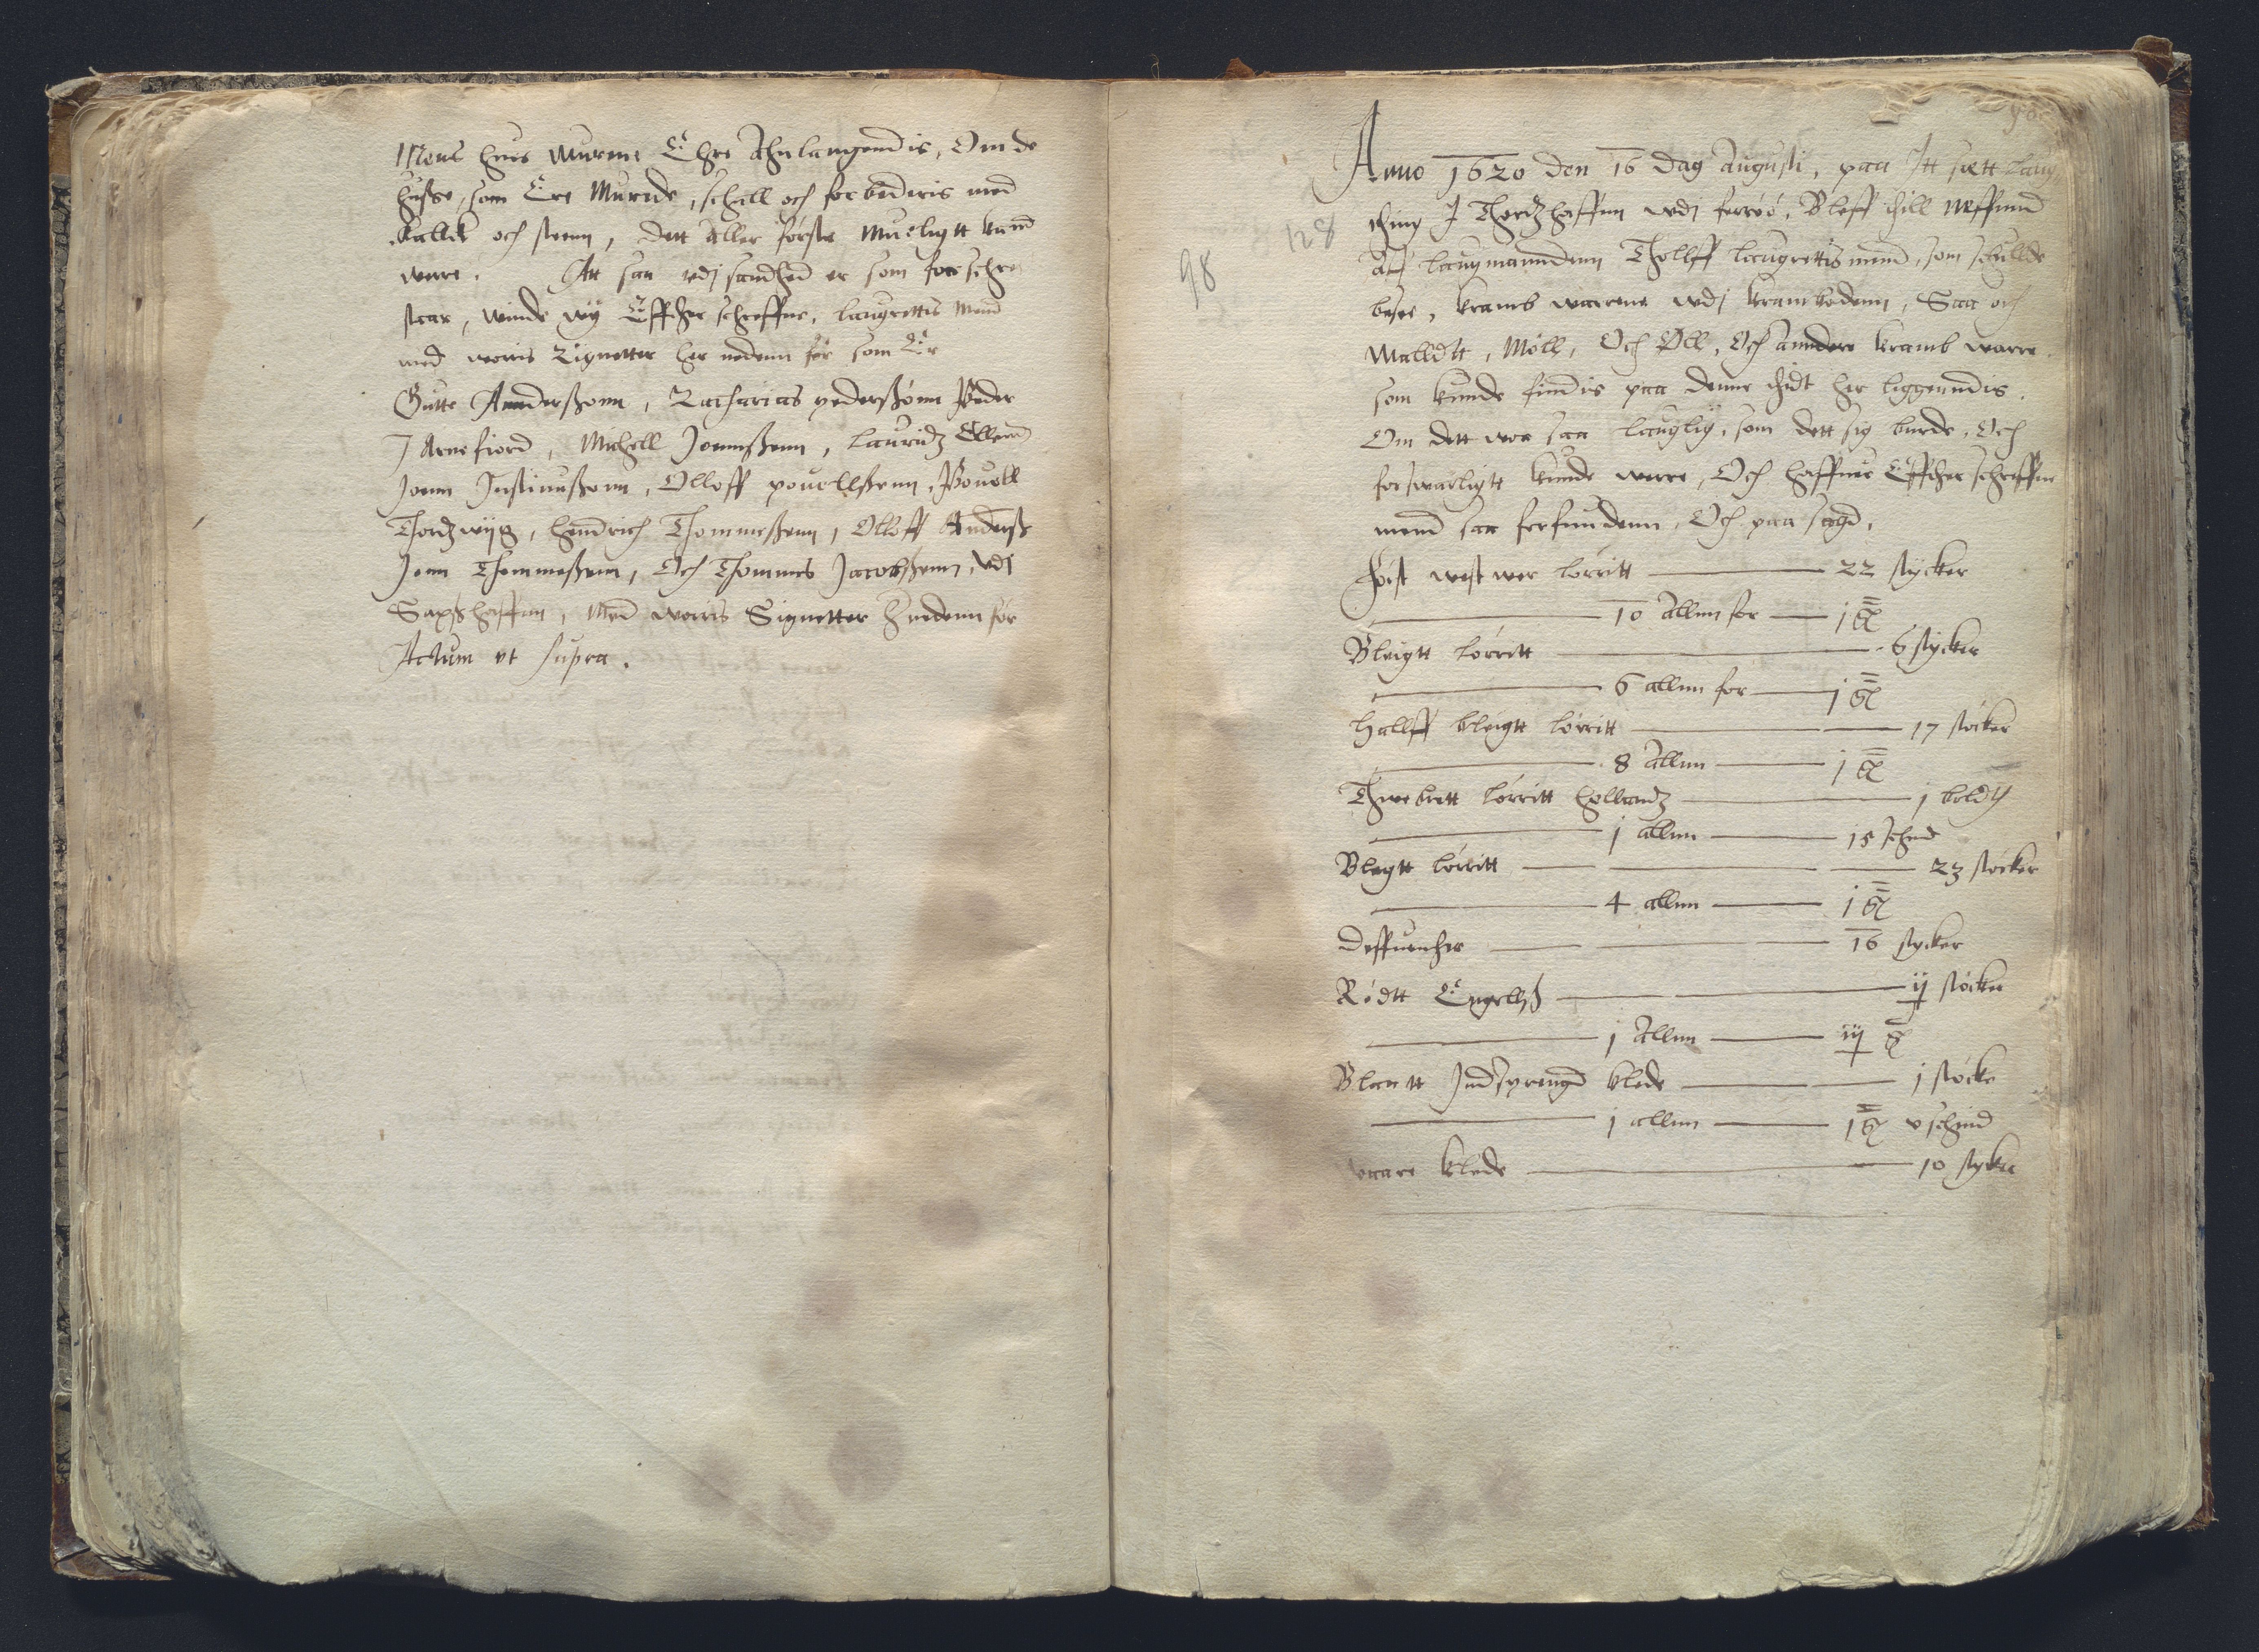 Mens hues Murene Ehre Ahnlangendis, Om de
husse, som Ere Murede, schall och forbedris med
Kallck och steenn, dett aller første Mueligtt kand
were. Att saa udj sandhed er som for schre
staar, Winde wij Effther schreffne, laugrettis Mend
med woris Zignetter her nedenn for som Er
Gutte Andersßonn, Zacharias pederßønn Peder
J Arnefiord, Michell Joennßenn, lauridz Ellend
Joenn Justinußonn, Olloff pouelßenn, Pouell
Thordzwijg, hendrich Thommeßenn, Olloff Anderß
Joen Thommeßenn, Och Thommes Jacobßenn, udj
Saxßhaffnn, Med woris Signetter H nedenn for
Actum vt supra.
98
128
Anno 1620 den 16 dag Augusti, paa Itt sætt laug
thing J Thordzhaffnn wdj ferröö, Bleff thill neffnnd
Aff laugmanndenn Thollff laugrettis mend, som schullde
besee, kramb warrene wdj kramboedenn, Saa och
Malldtt, Møll, Och Øll, Och anndere kramb warre
som kunde findis paa denne thidt her liggenndis.
Om dett wor saa lauglig, som dett sig burde, Och
forswarligtt kunde werre, Och haffuer Effther schreffne
mend saa forfundenn, Och paa sagd,
Først west wer lørritt 22 stycker
10 Allnn for 1
Bleigtt lørritt 6 stycker
6 allnn for 1
Hallff bleigtt lørritt 17 støcker
8 Allnn 1
Thwebrett lørritt hollandz 1
1 allnn 15 schind
Blegtt lørritt 23 støcker
4 allnn 1
16 stycker
Rødtt Engellß ij støcker
1 Allnn iij
Blaatt Indsprengd klede 1 støcke
1 allnn 1 v schind
klede 10 stycker